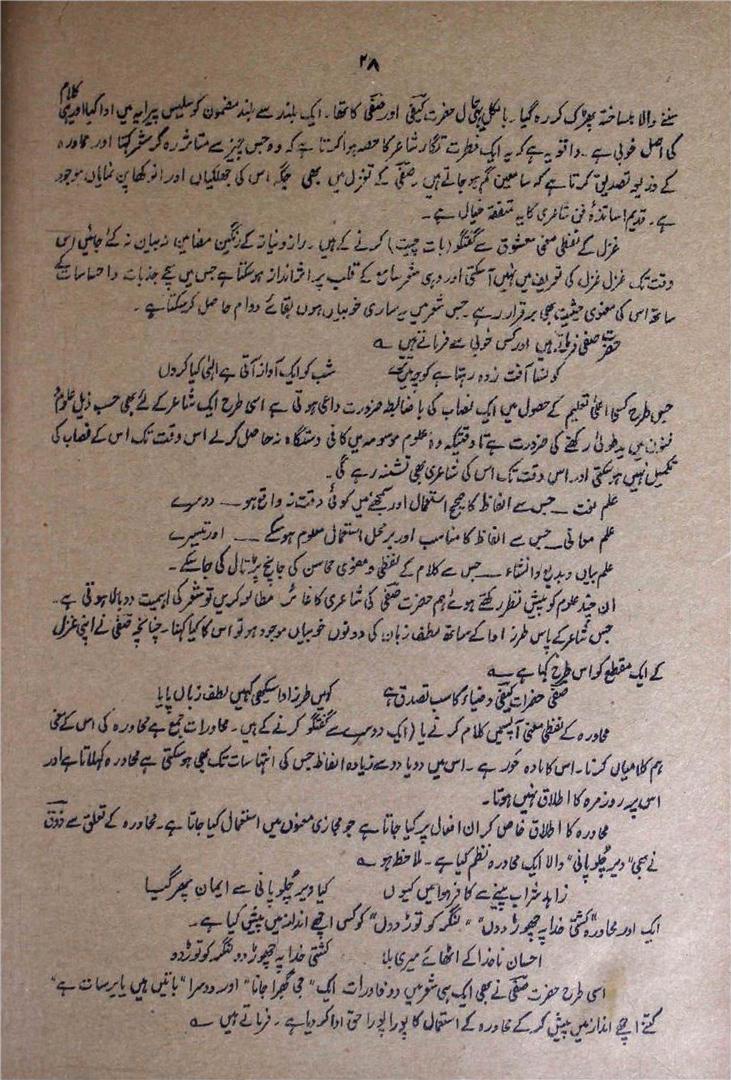 ۲۸
سننے والا بیساختہ پھڑک کر رہ گیا۔ بالکل یہی حال حضرت کیفی اور صفی کا تھا۔ ایک بلند سے بلند مضمون کو سلیس پیرایہ میں ادا کیا اور یہی کلام
کی اصل خوبی ہے۔ واقعہ یہ ہے کہ یہ ایک فطرت نگار شاعر کا حصہ ہوا کرتا ہے کہ وہ جس چیز سے متاثر رہ گر شعر کہتا اور محاورہ
کے ذریعہ تصدیق کرتا ہے کہ سامعین گم ہو جاتے ہیں۔ صفی کے تغزل میں بھی جگہ جگہ اس کی جھلکیاں اور انوکھا پن نمایاں موجود
ہے۔ قدیم اساتذۂ فن شاعری کا یہ متفقہ خیال ہے۔
غزل کے لفظی معنی معشوق سے گفتگو (بات چیت) کرنے کے ہیں۔ راز و نیاز کے رنگین مضامین نہ بیان نہ کئے جائیں اس
وقت تک غزل غزل کی تعریف میں نہیں آسکتی اور وہی شعر سامع کے قلب پر اثر انداز ہو سکتا ہے جس میں سچے جذبات و احساسات کے
ساتھ اس کی معنوی حیثیت بھی برقرار رہے۔ جس شعر میں یہ ساری خوبیاں ہوں بقائے دوام حاصل کر سکتا ہے۔
حضرت صفی فرماتے ہیں اور کس خوبی سے فرماتے ہیں ؎
کونسا آفت زدہ رہتا ہے کوچہ میں ترے شب کو ایک آواز آتی ہے الٰہی کیا کروں
جس طرح کسی اعلیٰ تعلیم کے حصول میں ایک نصاب کی با ضابطہ ضرورت داعی ہوتی ہے اسی طرح ایک شاعر کے لئے بھی حسب ذیل علوم و
فنون میں یدطولیٰ رکھنے کی ضرورت ہے تا وقتیکہ وہ علوم موسومہ میں کافی دستگاہ نہ حاصل کرلے اس وقت تک اس کے نصاب کی
تکمیل نہیں ہو سکتی اور اس وقت تک اس کی شاعری بھی تشنہ رہے گی۔
علم لغت ــ جس سے الفاظ کا صحیح استعمال اور سمجھنے میں کوئی دقت نہ واقع ہو ــ دوسرے
علم معانی ــ جس سے الفاظ کا مناسب اور برمحل استعمال معلوم ہو سکے ــ اور تیسرے
علم بیان و بدیع و انشاء ــ جس سے کلام کے لفظی و معنوی محاسن کی جانچ پڑتال کی جا سکے۔
ان چند علوم کو پیش نظر رکھتے ہوئے ہم حضرت صفی کی شاعری کا غائر مطالعہ کریں تو شعر کی اہمیت دوبالا ہوتی ہے۔
جس شاعر کے پاس طرز ادا کے ساتھ لطف زبان کی دونوں خوبیاں موجود ہو تو اس کا کیا کہنا۔ چنانچہ صفی نے اپنی غزل
کے ایک مقطع کو اس طرح کہا ہے ؎
صفی حضرات کیفی و ضیاء کا سب تصدق ہے کہیں طرز ادا سیکھی کہیں لطف زباں پایا
محاورہ کے لفظی معنی آپسمیں کلام کرنے یا (ایک دوسرے سے گفتگو کرنے کے ہیں۔ محاورات جمع ہے محاورہ کی اس کے معنی
ہم کلامیاں کرنا۔ اس کا مادہ حَور ہے۔ اس میں دو یا دو سے زیادہ الفاظ جس کی انتہا سات تک بھی ہو سکتی ہے محاورہ کہلاتا ہے اور
اس پر روزمرہ کا اطلاق نہیں ہوتا۔
محاورہ کا اطلاق خاص کر ان افعال پر کیا جاتا ہے جو مجازی معنوں میں استعمال کیا جاتا ہے۔ محاورہ کے تعلق سے ذوق
نے بھی "ڈیڑھ چلو پانی" والا ایک محاورہ نظم کیا ہے۔ ملاحظہ ہو ؎
زاہد شراب پینے سے کافر ہوا میں کیوں کیا ڈیڑھ چلو پانی سے ایمان پھر گیا
ایک اور محاورہ "کشتی خدا پہ چھوڑ دوں" "لنگر کو توڑ دوں" کو کس اچھے انداز میں پیش کیا ہے۔
احسان ناخدا کے اٹھائے میری بلا کشتی خدا پہ چھوڑ دوں لنگر کو توڑ دوں
اسی طرح حضرت صفی نے بھی ایک ہی شعر میں دو محاورات ایک "جی گھبرا جانا" اور دوسرا "باتیں ہیں یا برسات ہے"
کتنے اچھے انداز میں پیش کر کے محاورہ کے استعمال کا پورا پورا حق ادا کر دیا ہے۔ فرماتے ہیں ؎